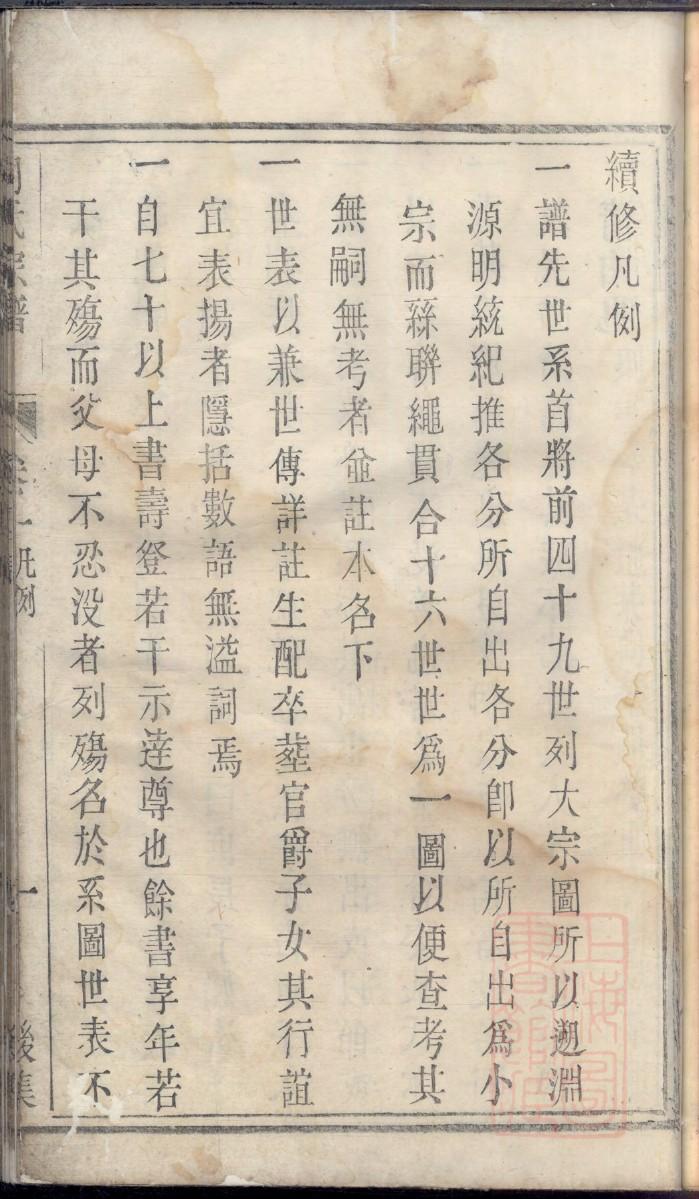 續修凡例
一譜先世系首將前四十九世列大宗圖所以遡淵
源明統紀推各分所自出各分卽以所自出爲小
宗而繇聯繩貫合十六世世爲一圖以便查考其
無嗣無考者並註本名下
一世表以兼世傳詳註生配卒塟官爵子女其行誼
宜表揚者隱括數語無溢詞焉
一自七十以上書壽登若干示達尊也餘書享年若
干其殤而父母不忍没者列殤名於系圖世表不
氏宗譜 卷一凡例 一